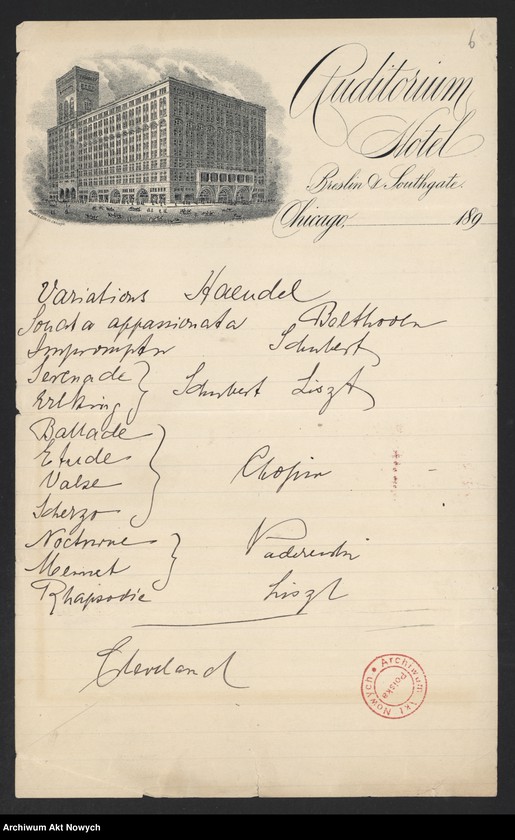 6
Auditorium
Hotel
Breslin & Southgate.
Chicago, 189
Variations Haendel
Sonata appassionata Beethoven
Impromptu Schubert
Serenade
Erlking
Schubert Liszt
Ballade
Etude
Valse
Scherzo
Chopin
Nocturne
Menuet
Paderewski
Rhapsodie Liszt
Cleveland
Archiwum Akt Nowych
Polska
Archiwum Akt Nowych